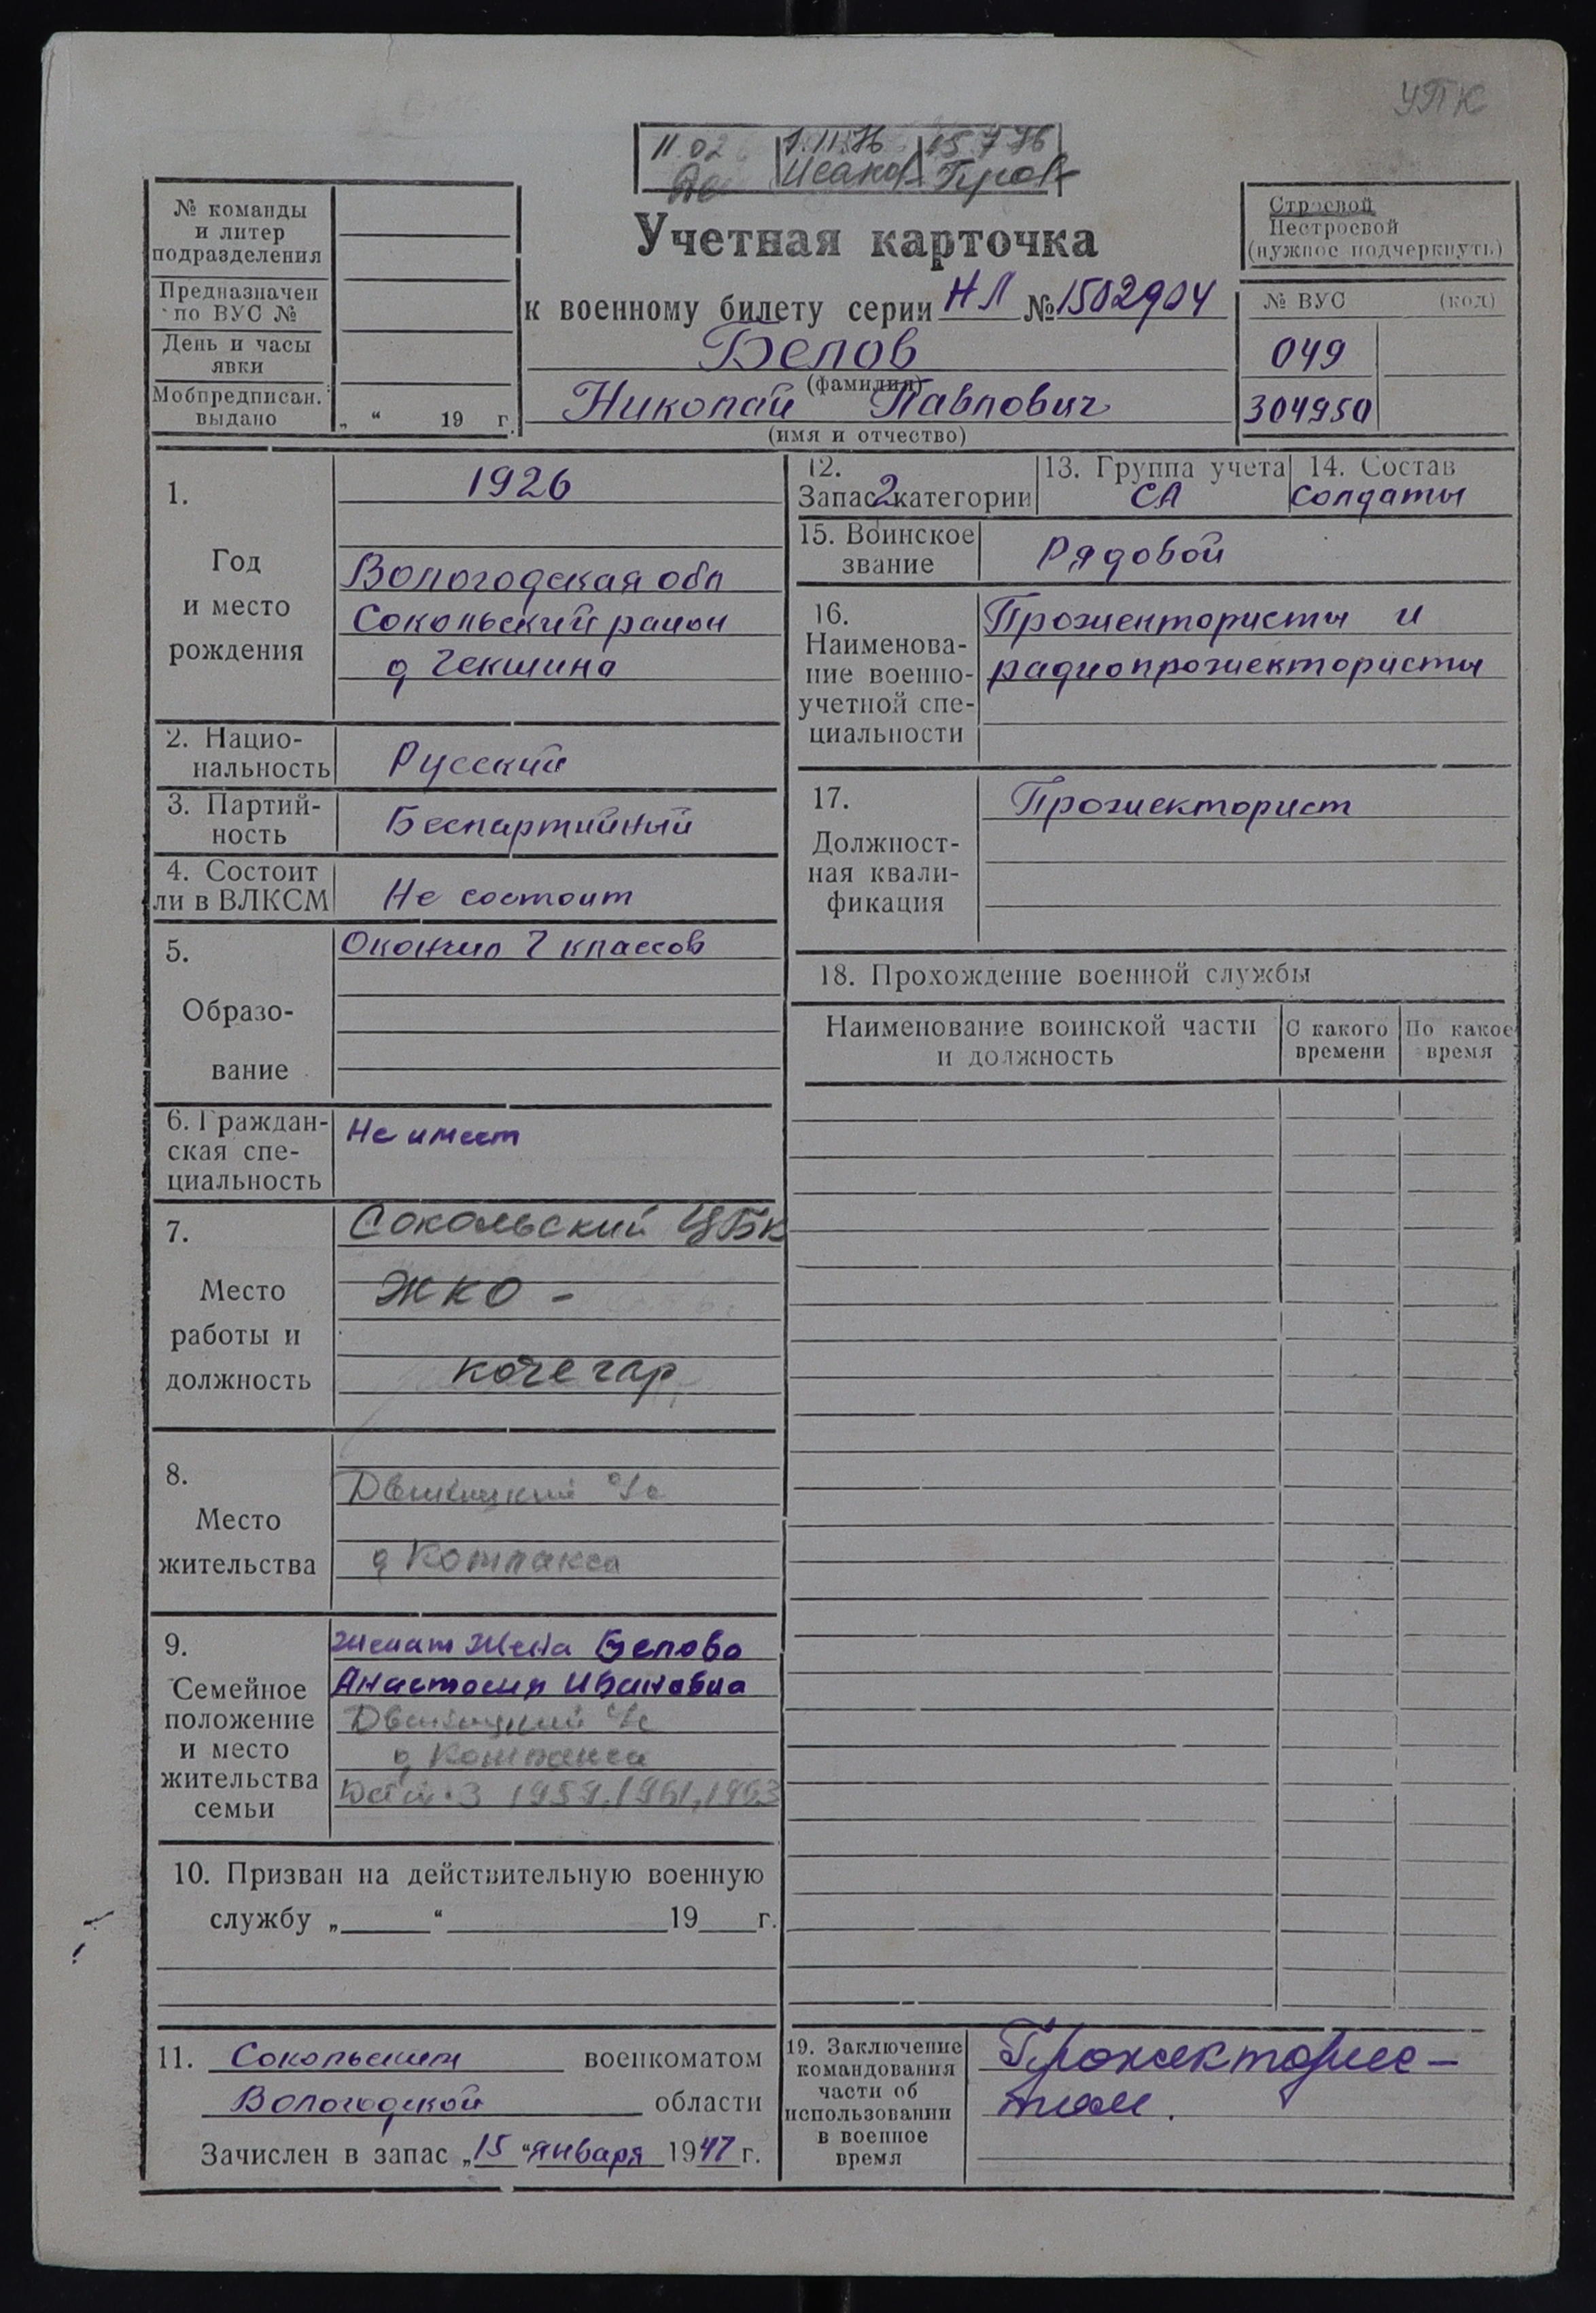 УПК
11.02 1.11.76 15.7.76
Исаков
№ команды
и литер
подразделения
Предназначен
по ВУС №
День и часы
явки
Мобпредписан.
выдано
„ “ 19 г.
Учетная карточка
к военному билету серии НЛ № 1502904
Белов
(фамилия)
Николай Павлович
(имя и отчество)
Строевой
Нестроевой
(нужное подчеркнуть)
№ ВУС (код)
049
304950
1.
Год
и место
рождения
1926
Вологодская обл
Сокольский район
д Чекшина
2. Нацио-
нальность
Русский
3. Партий-
ность
Беспартийный
4. Состоит
ли в ВЛКСМ
Не состоит
5.
Образо-
вание
Окончил 7 классов
6. Граждан-
ская спе-
циальность
Не имеет
7.
Место
работы и
должность
Сокольский ЦБК
ЖКО -
кочегар
8.
Место
жительства
Двиницкий с/с
д Котлакса
9.
Семейное
положение
и место
жительства
семьи
Женат Жена Белова
Анастасия Ивановна
Двиницкий с/с
д Котлакса
Дети - 3 1959, 1961, 1963
10. Призван на действительную военную
службу „ “ 19 г.
11. Сокольским военкоматом
Вологодской области
Зачислен в запас „15“ января 1947 г.
12.
Запас 2 категории
13. Группа учета
СА
14. Состав
Солдаты
15. Воинское
звание
Рядовой
16.
Наименова-
ние военно-
учетной спе-
циальности
Прожектористы и
радиопрожектористы
17.
Должност-
ная квали-
фикация
Прожекторист
18. Прохождение военной службы
Наименование воинской части
и должность
С какого
времени
По какое
время
19. Заключение
командования
части об
использовании
в военное
время
Прожекторис-
том.